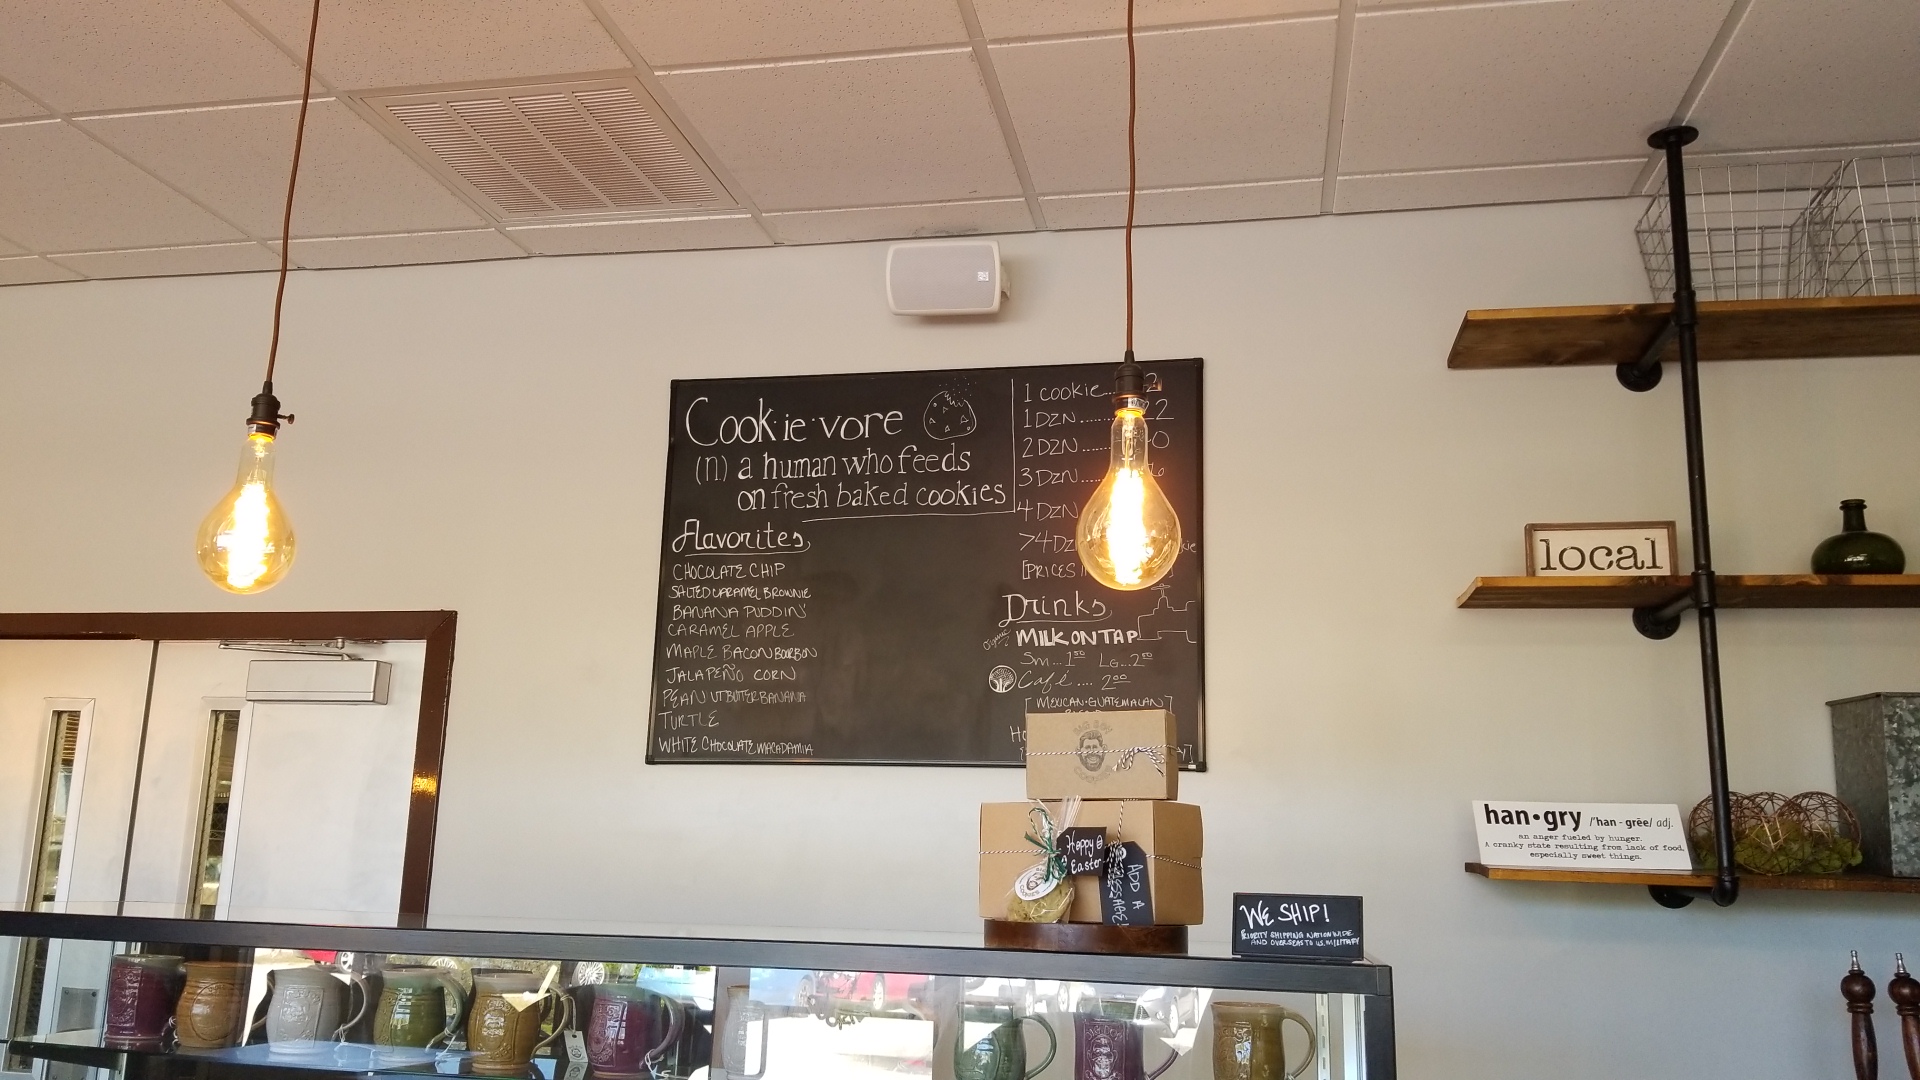 Cook·ie·vore
(n) a human who feeds
on fresh baked cookies
Flavorites
CHOCOLATE CHIP
SALTED CARAMEL BROWNIE
BANANA PUDDIN'
CARAMEL APPLE
MAPLE BACON BOURBON
JALAPEÑO CORN
PEANUTBUTTER BANANA
TURTLE
WHITE CHOCOLATE MACADAMIA
1 COOKIE....2
1 DZN
2 DZN
3 DZN
4 DZN
>4 DZ
[PRICES
Drinks
Organic MILK ON TAP
Sm...1.50 LG...2.50
Café.... 2.00
[MEXICAN-GUATEMALAN
Happy
Easter
ADD A
MESSAGE!
WE SHIP!
PRIORITY SHIPPING NATIONWIDE
AND OVERSEAS TO U.S. MILITARY
local
han•gry /'han - grēe/ adj.
an anger fueled by hunger.
A cranky state resulting from lack of food,
especially sweet things.